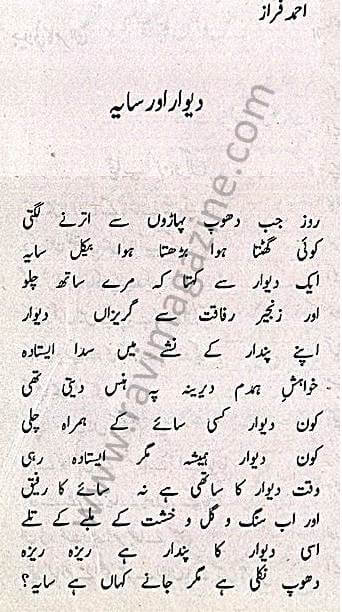 احمد فراز
دیوار اور سایہ
روز جب دھوپ پہاڑوں سے اترنے لگتی
کوئی گھٹتا ہوا بڑھتا ہوا بیکل سایہ
ایک دیوار سے کہتا کہ مرے ساتھ چلو
اور زنجیرِ رفاقت سے گریزاں دیوار
اپنے پندار کے نشے میں سدا ایستادہ
خواہشِ ہمدم دیرینہ پہ ہنس دیتی تھی
کون دیوار کسی سائے کے ہمراہ چلی
کون دیوار ہمیشہ مگر ایستادہ رہی
وقت دیوار کا ساتھی ہے نہ سائے کا رفیق
اور اب سنگ و گل و خشت کے ملبے کے تلے
اسی دیوار کا پندار ہے ریزہ ریزہ
دھوپ نکلی ہے مگر جانے کہاں ہے سایہ؟
www.ravimagazine.com